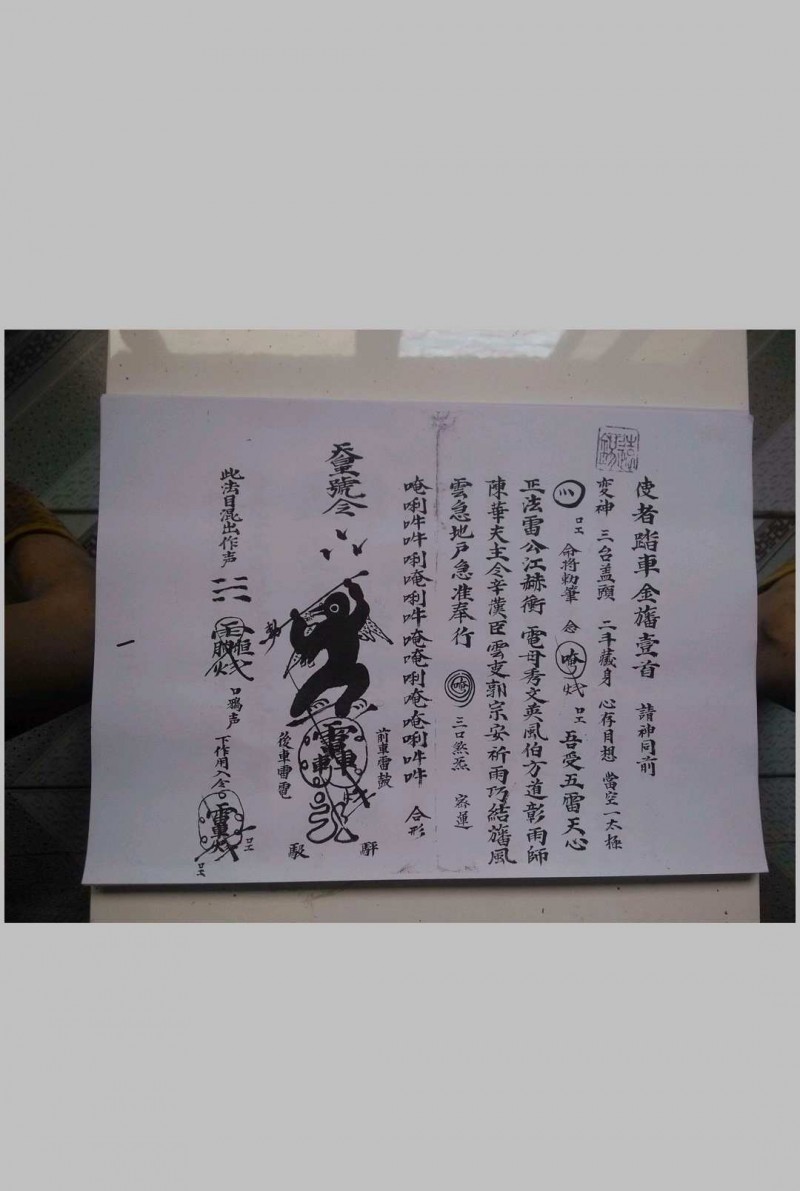 使者踏車金旛壹首 請神同前
変神 三台盖頭 二手藏身 心存目想 當空一太極
命將勅筆 念 唵 吾受五雷天心
正法雷公江赫衝 電母秀文英風伯方道彰雨師
陳華夫主令辛漢臣雲吏郭宗安祈雨巧結旛風
雲急地戸急准奉行 唵 三口炁 密運
唵唎吽吽唎唵唎吽唵唵唎唵唵唎吽吽 合形
前車雷鼓
後車雷電
號令
此法目混出作声
口鴉声
下作用入念
一